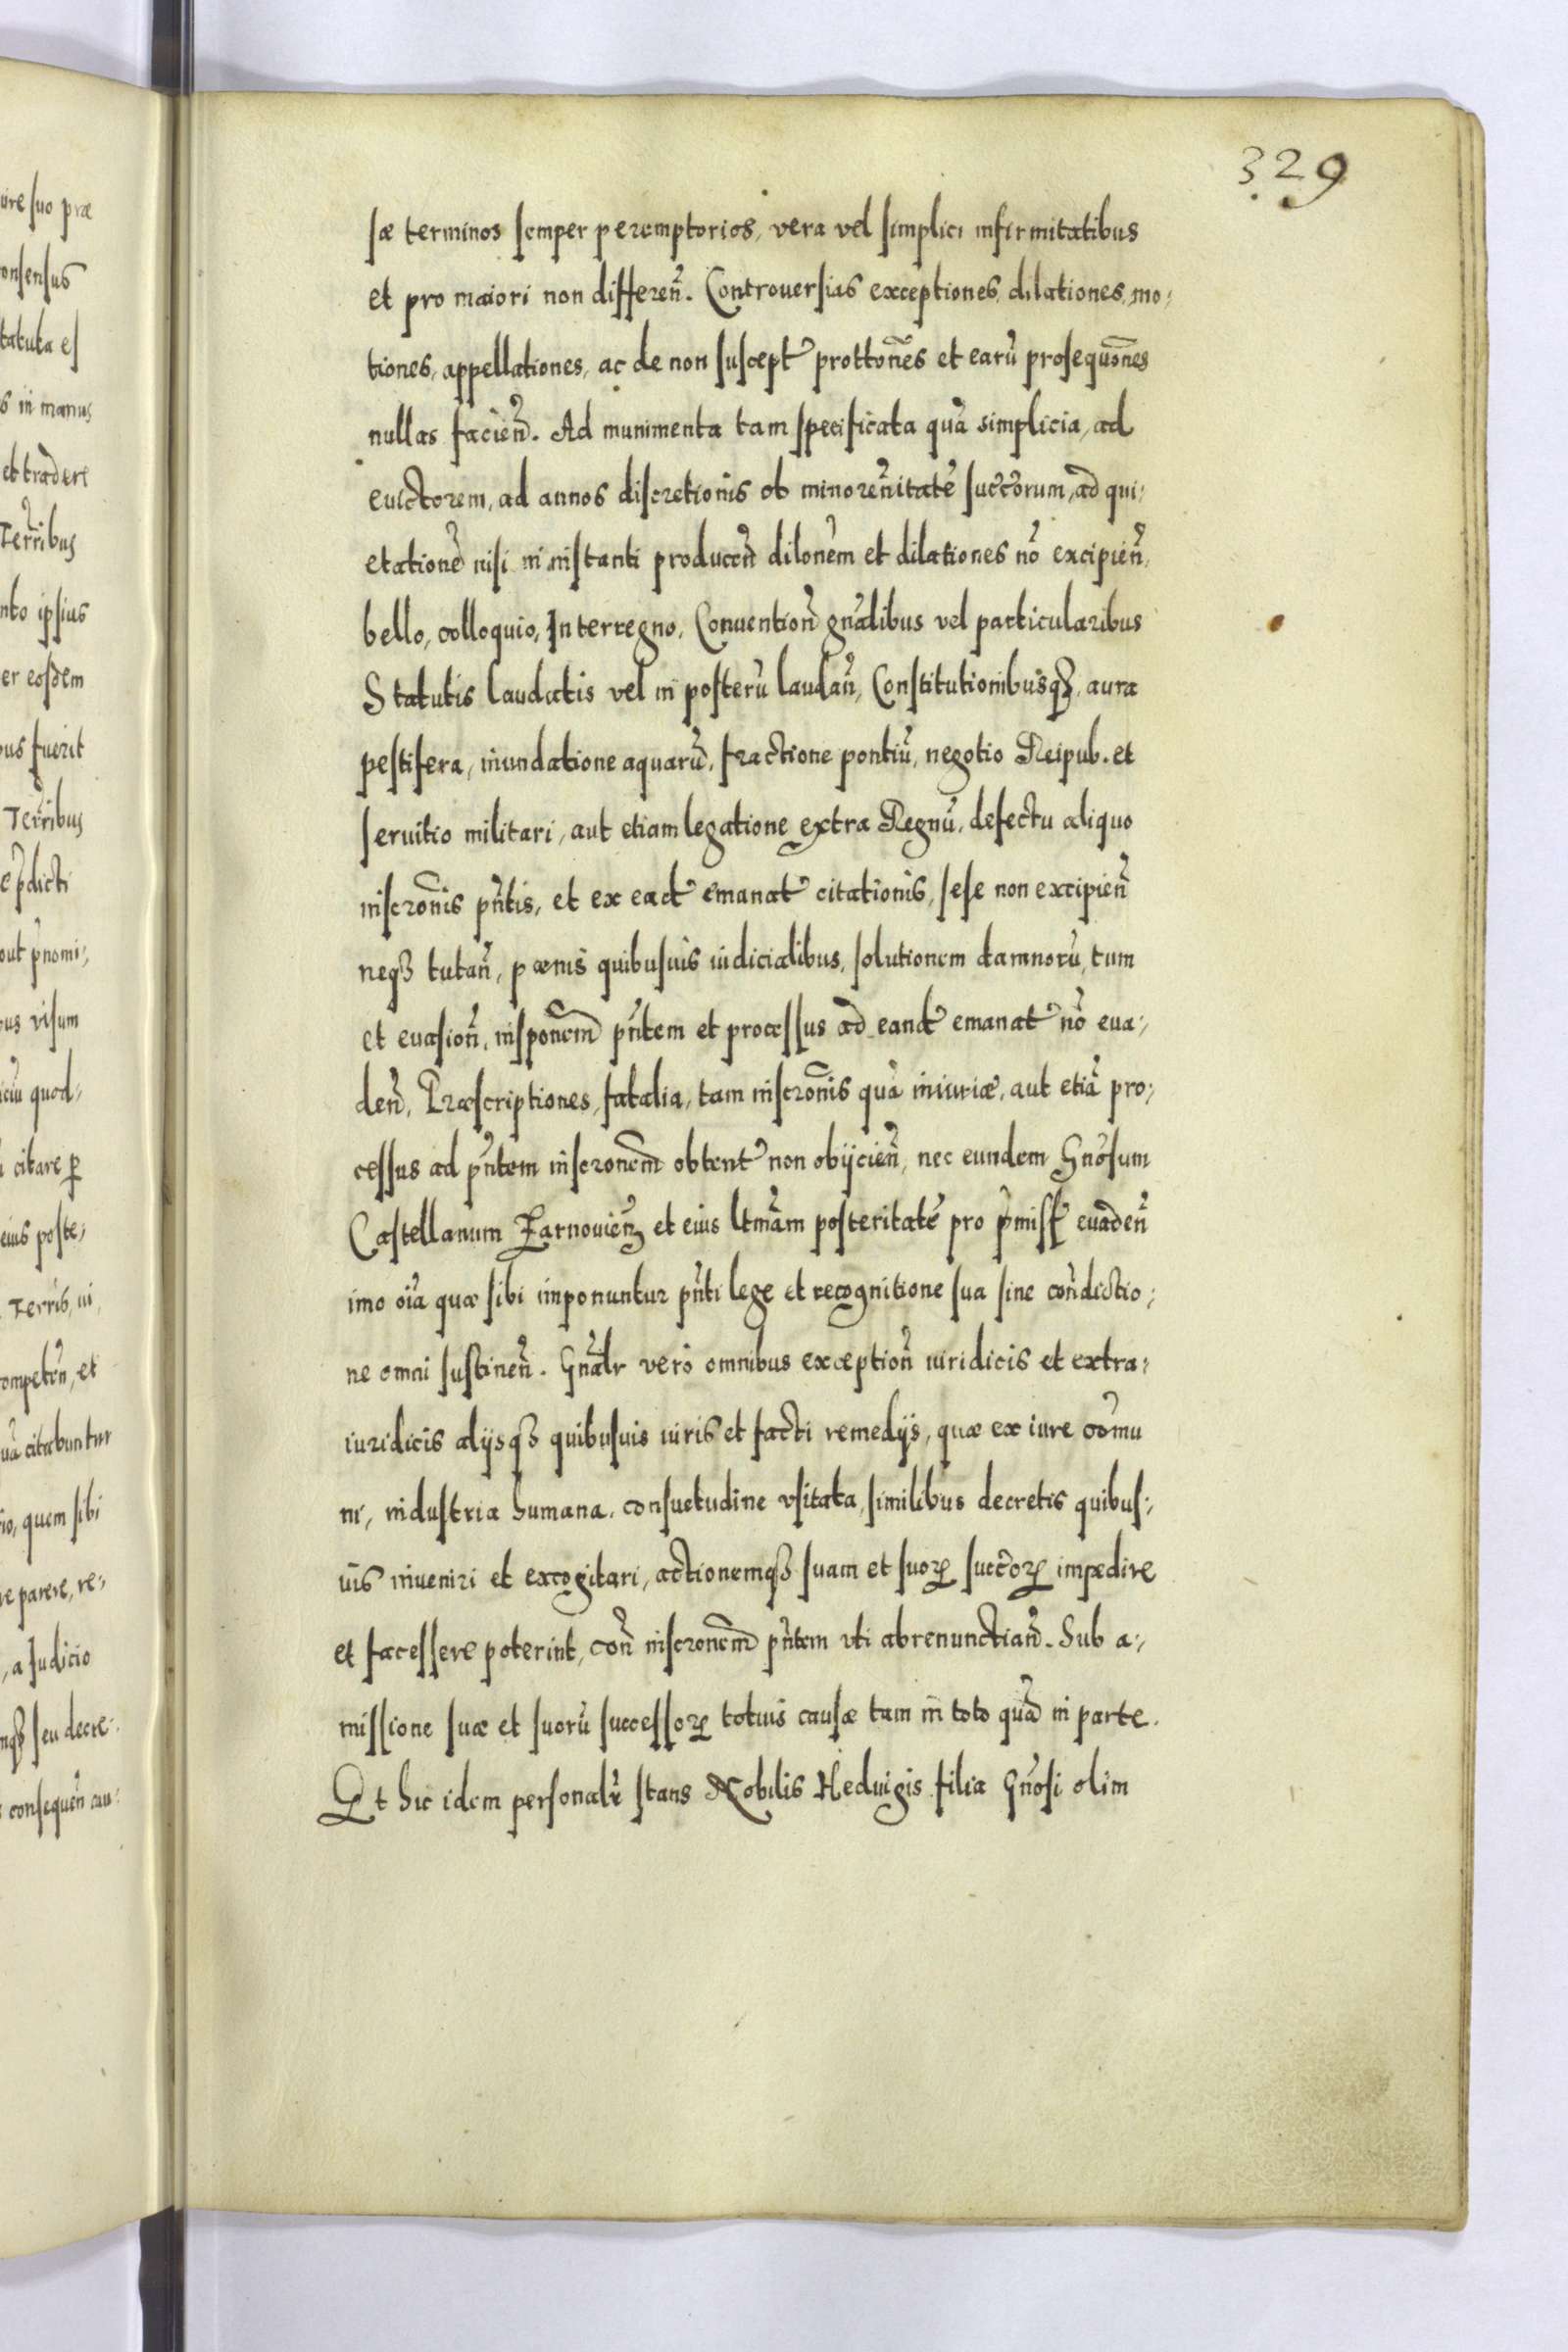 329
sæ terminos semper peremptorios, vera vel simplici infirmitatibus
et pro maiori non differeñ. Controuersias exceptiones, dilationes, mo:
tiones, appellationes, ac de non suscept̃ prottoñes et earũ prosequõnes
nullas facieñ. Ad munimenta tam specificata quã simplicia, ad
euictorem, ad annos discretionis ob minoreñitatẽ succ̃orum, ad qui:
etationẽ nisi in instanti produceñ dilonẽm et dilationes nõ excipieñ,
bello, colloquio, Interregno, Conuentioñ gnãlibus vel particularibus
Statutis laudatis vel in posterũ laudañ, Constitutionibusqȝ, aura
pestifera, inundatione aquarũ, fractione pontiũ, negotio Reipub. et
seruitio militari, aut etiam legatione extra Regnũ, defectu aliquo
inscrõnis pñtis, et ex ead̃ emanat̃ citationis, sese non excipieñ
neqȝ tutañ, pœnis quibusuis iudicialibus, solutionem damnorũ, tum
et euasioñ, insponẽm pñtem et processus ad eand̃ emanat̃ nõ eua:
deñ, Præscriptiones, fatalia, tam inscrõnis quã iniuriæ, aut etiã pro:
cessus ad pñtem inscronẽm obtent̃ non obijcieñ, nec eundem Gnõsum
Castellanum Zarnouieñ et eius ltmãm posteritatẽ pro p̃miss̃ euadeñ
imo oĩa quæ sibi imponuntur pñti lege et recognitione sua sine coñdictio:
ne omni sustineñ. Gnãlr vero omnibus exceptioñ iuridicis et extra:
iuridicis alijsqȝ quibusuis iuris et facti remedijs, quæ ex iure com̃u
ni, industria humana, consuetudine vsitata, similibus decretis quibus:
uis inueniri et excogitari, actionemqȝ suam et suoꝝ succ̃oꝝ impedire
et facessere poterint, coñ inscronẽm pñtem vti abrenunctiañ. Sub a:
missione suæ et suorũ successoꝝ totius causæ tam in toto quã in parte.
Et hic idem personalr̃ stans Nobilis Heduigis filia Gnõsi olim